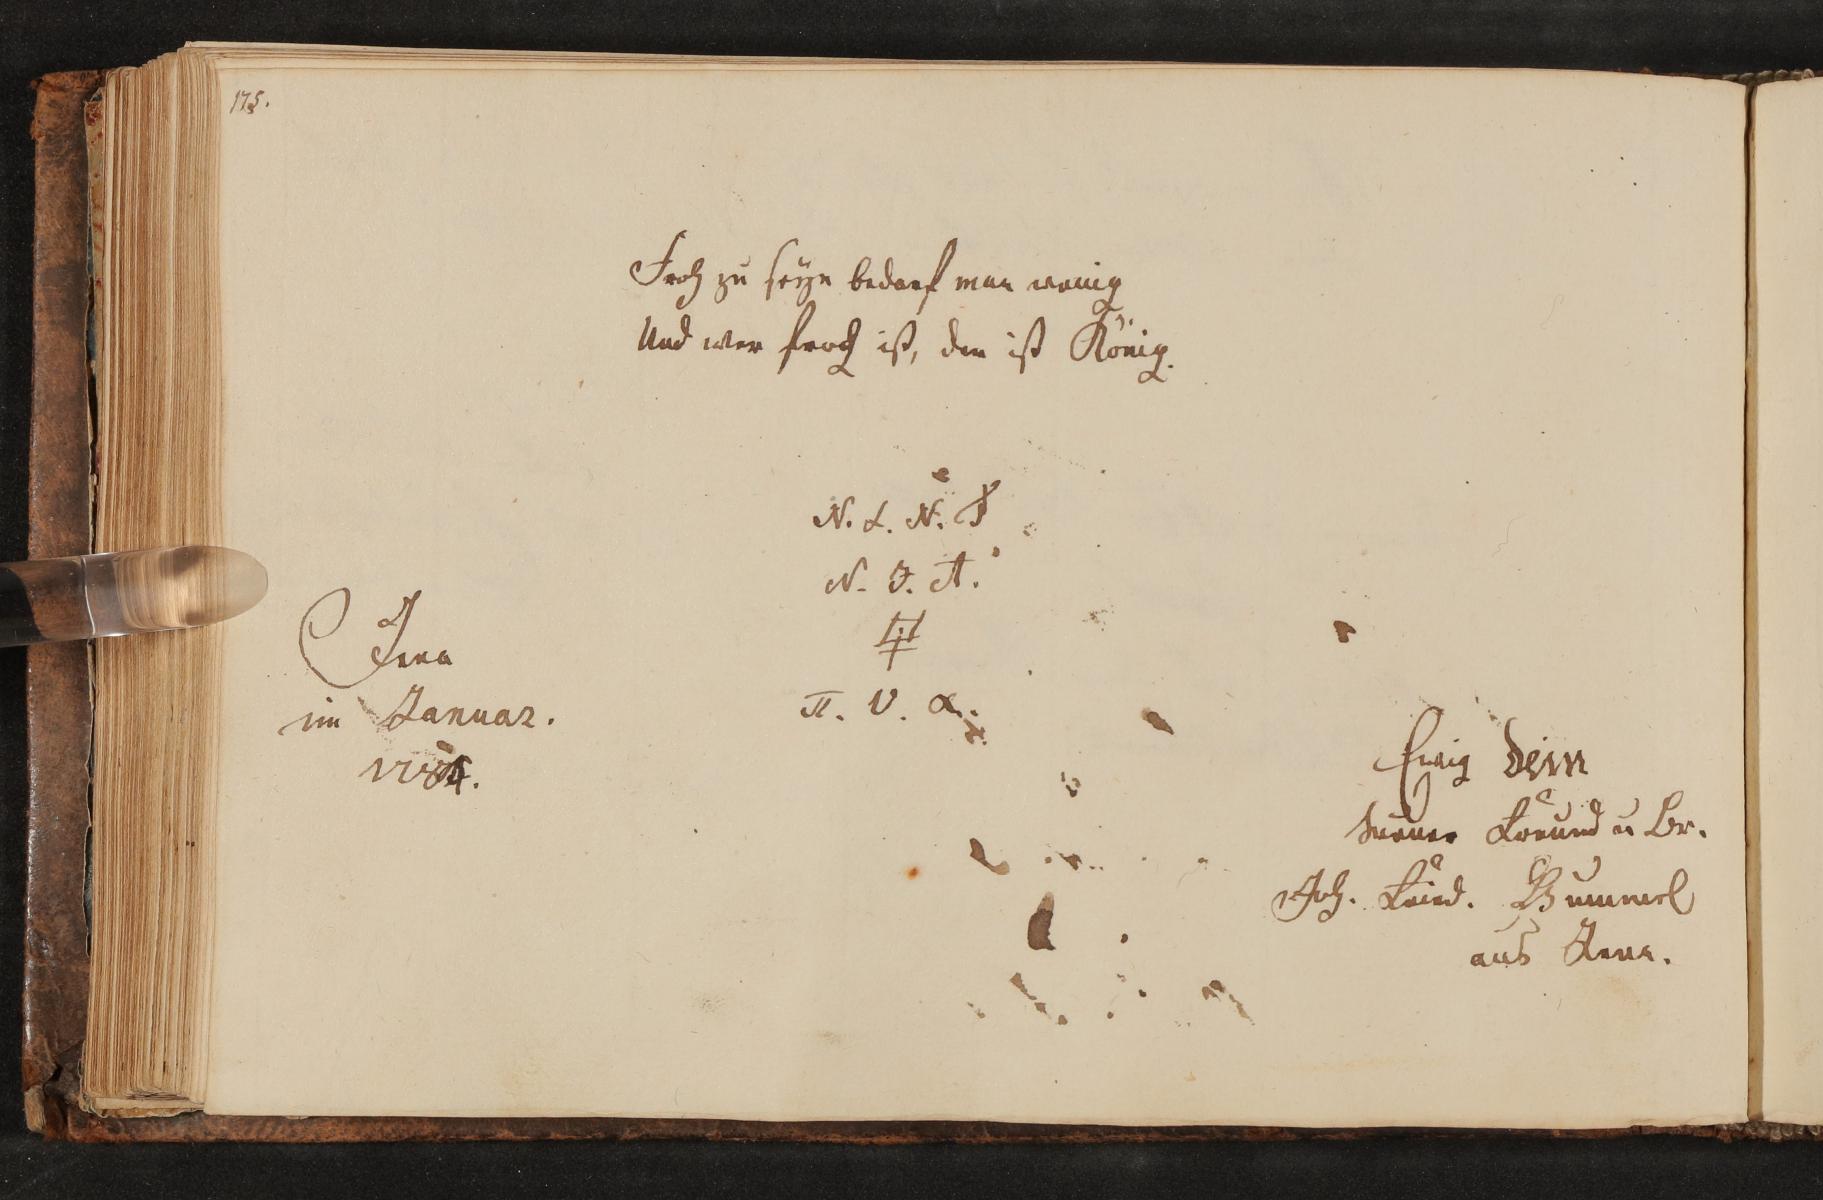 175.
Froh zu seyn bedarf man wenig
Und wer froh ist, der ist König.
N. L. N.
N. J. A.
π. V. α.
Jena
im Januar.
1784.
Ewig Dein
treuer Freund u Br.
Joh. Fried. Bummel
aus Jena.